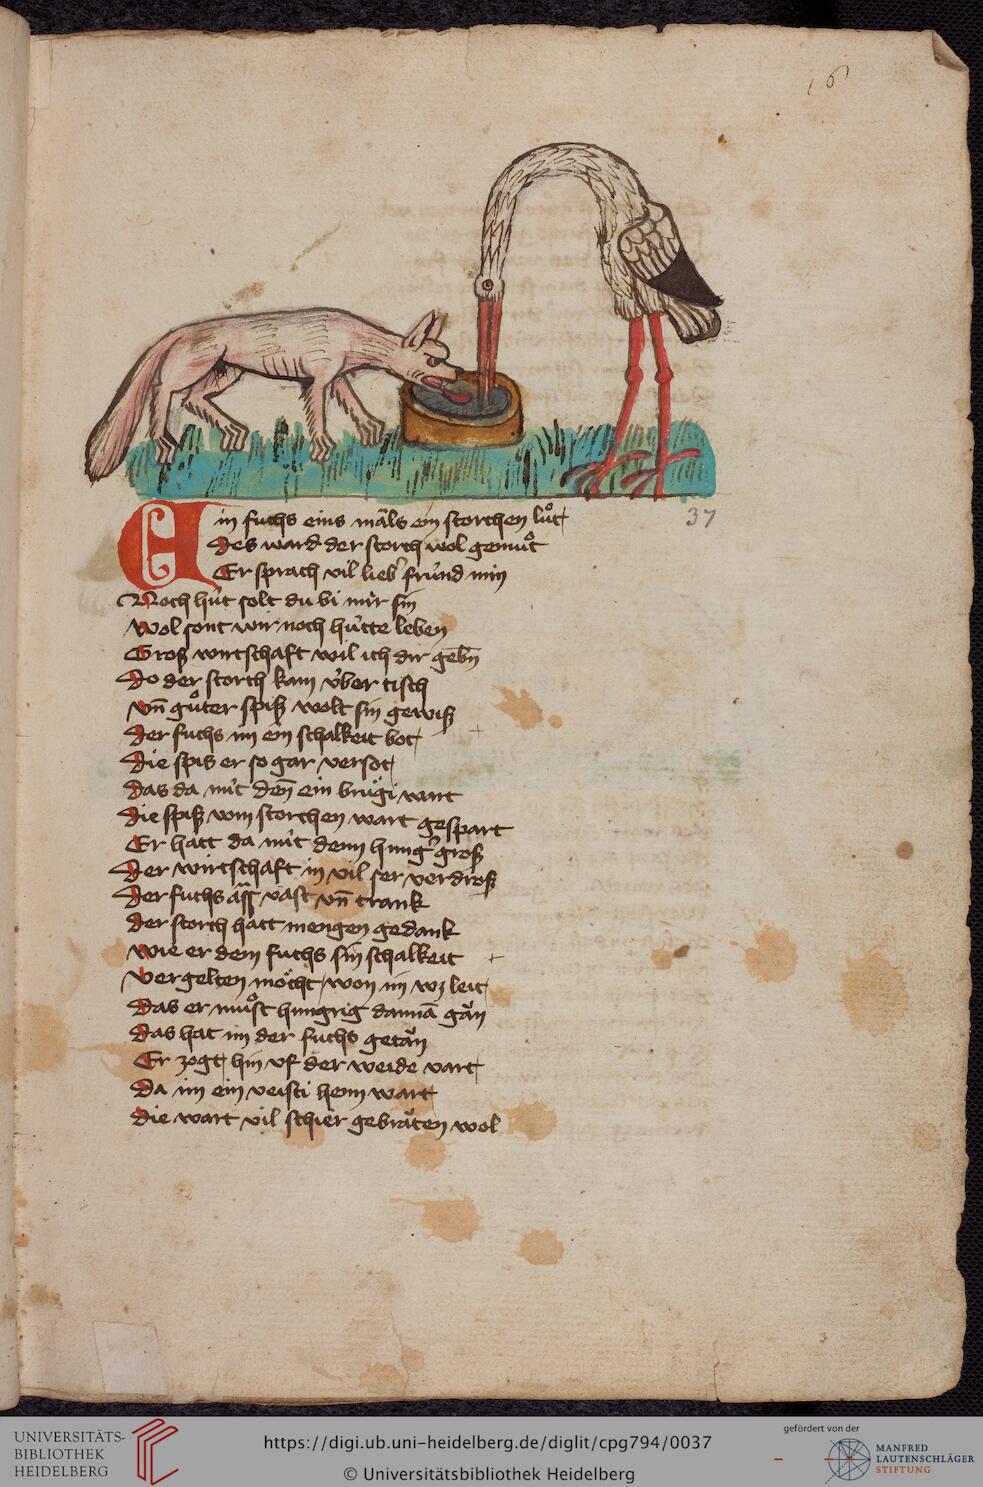 16
Ein fuchs eins mâls ein storchen lůt
Des ward der storch wol gemůt
Er sprach vil lieb' frúnd min
Noch hút solt du bi mir sin
Wol sont wir noch hútte leben
Groß wirtschaft wil ich dir gebn̄
Do der storch kam v́ber tisch
Vn̄ gůter spiß wolt sin gewiß
Der fuchs im ein schalkeit bot
Die spis er so gar versot
Das da mit den̄ ein brúgi wart
Die spiß vom storchen wart gespart
Er hatt da mit dem hung' groß
Der wirtschaft in vil ser verdroß
Der fuchs aß vast vn̄ trank
Der storch hatt mengen gedank
Wie er dem fuchs sin schalkeit
Vergelten möcht won im wz leit
Das er můst hungrig dannā gân
Das hat im der fuchs getân
Er zogt hin vf der weide vart
Da im ein veisti henn wart
Die wart vil schier gebrâten wol
37
UNIVERSITÄTS-
BIBLIOTHEK
HEIDELBERG
https://digi.ub.uni-heidelberg.de/diglit/cpg794/0037
© Universitätsbibliothek Heidelberg
gefördert von der
MANFRED
LAUTENSCHLÄGER
STIFTUNG